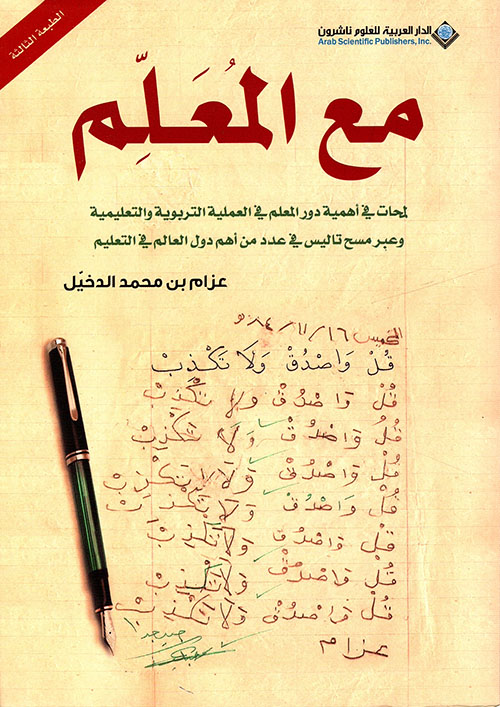 الطبعة الثالثة
الدار العربية للعلوم ناشرون
Arab Scientific Publishers, Inc.
مع المُعَلِّم
لمحات في أهمية دور المعلم في العملية التربوية والتعليمية
وعبر مسح تاليس في عدد من أهم دول العالم في التعليم
عزام بن محمد الدخيّل
الخميس ١٦/١١/٨٤هـ
قُلْ وَاصْدُقْ وَلَا تَكْذِبْ
قُلْ وَاصْدُقْ وَلَا تَكْذِبْ
قُلْ وَاصْدُقْ وَلَا تَكْذِبْ
قُلْ وَاصْدُقْ وَلَا تَكْذِبْ
قُلْ وَاصْدُقْ وَلَا تَكْذِبْ
قُلْ وَاصْدُقْ وَلَا تَكْذِبْ
قُلْ وَاصْدُقْ وَلَا تَكْذِبْ
قُلْ وَاصْدُقْ وَلَا تَكْذِبْ
عزام